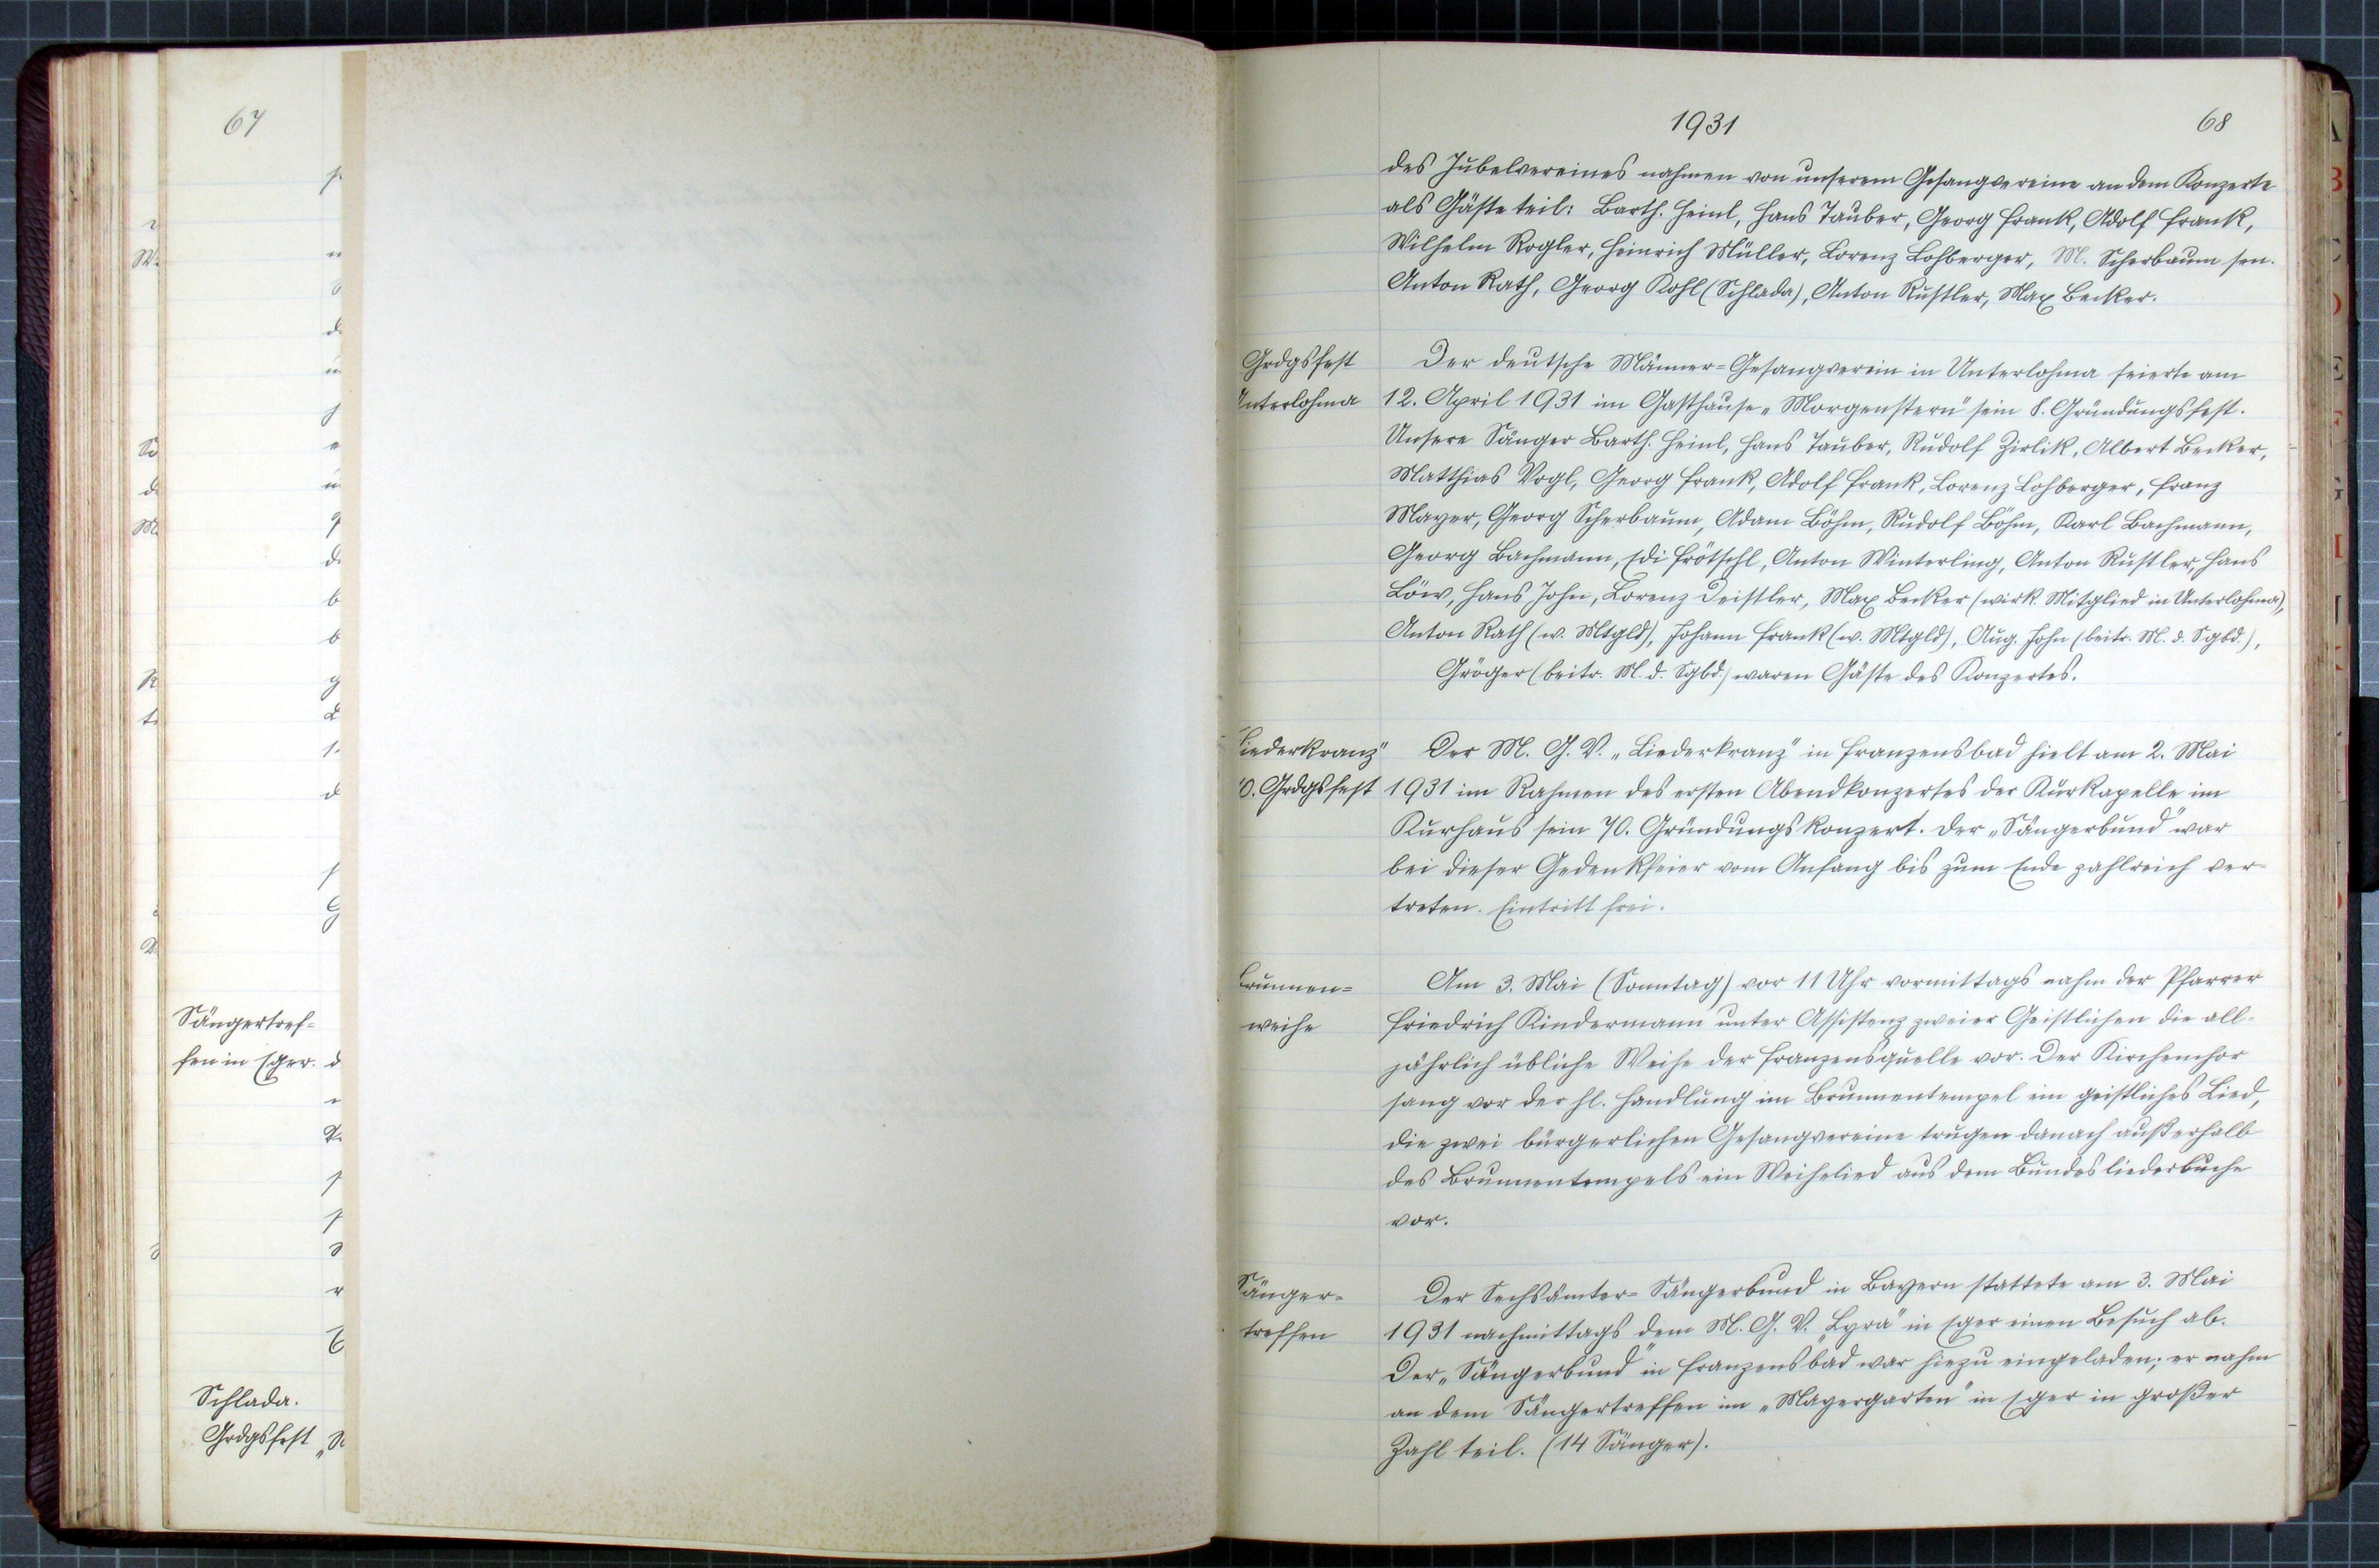 67
Sängertref-
fen in Eger.
Schlada.
Grdgsfest
1931
68
des Jubelvereines nahmen von unserem Gesangvereine an dem Konzerte
als Gäste teil: Barth. Heinl, Hans Tauber, Georg Frank, Adolf Frank,
Wilhelm Rogler, Heinrich Müller, Lorenz Lohberger, M. Scherbaum sen.
Anton Rath, Georg Kohl (Schlada), Anton Rustler, Max Becker.
Grdgsfest
Unterlohma
Der deutsche Männer-Gesangverein in Unterlohma feierte am
12. April 1931 im Gasthause „Morgenstern" sein 8. Gründungsfest.
Unsere Sänger Barth. Heinl, Hans Tauber, Rudolf Zirlik, Albert Becker,
Matthias Vogl, Georg Frank, Adolf Frank, Lorenz Lohberger, Franz
Mayer, Georg Scherbaum, Adam Böhm, Rudolf Böhm, Karl Bachmann,
Georg Bachmann, Edi Frötschl, Anton Winterling, Anton Rustler, Hans
Löw, Hans John, Lorenz Deistler, Max Becker (wirk. Mitglied in Unterlohma),
Anton Rath (w. Mtgld), Johann Frank (w. Mtgld), Aug. John (beitr. M. d. Sgbd.),
Gröger (beitr. M. d. Sgbd.) waren Gäste des Konzertes.
Liederkranz"
70. Grdgsfest
Der M. G. V. „Liederkranz" in Franzensbad hielt am 2. Mai
1931 im Rahmen des ersten Abendkonzertes der Kurkapelle im
Kurhaus sein 70. Gründungskonzert. Der „Sängerbund" war
bei dieser Gedenkfeier vom Anfang bis zum Ende zahlreich ver-
treten. Eintritt frei.
Brunnen-
weihe
Am 3. Mai (Sonntag) vor 11 Uhr vormittags nahm der Pfarrer
Friedrich Kindermann unter Assistenz zweier Geistlichen die all-
jährlich übliche Weihe der Franzensquelle vor. Der Kirchenchor
sang vor der hl. Handlung im Brunnentempel ein geistliches Lied,
die zwei bürgerlichen Gesangvereine trugen danach außerhalb
des Brunnentempels ein Weihelied aus dem Bundesliederbuche
vor.
Sänger-
treffen
Der Sechsämter-Sängerbund in Bayern stattete am 3. Mai
1931 nachmittags dem M. G. V. „Lyra" in Eger einen Besuch ab.
Der „Sängerbund" in Franzensbad war hiezu eingeladen; er nahm
an dem Sängertreffen im „Mayergarten" in Eger in großer
Zahl teil. (14 Sänger).